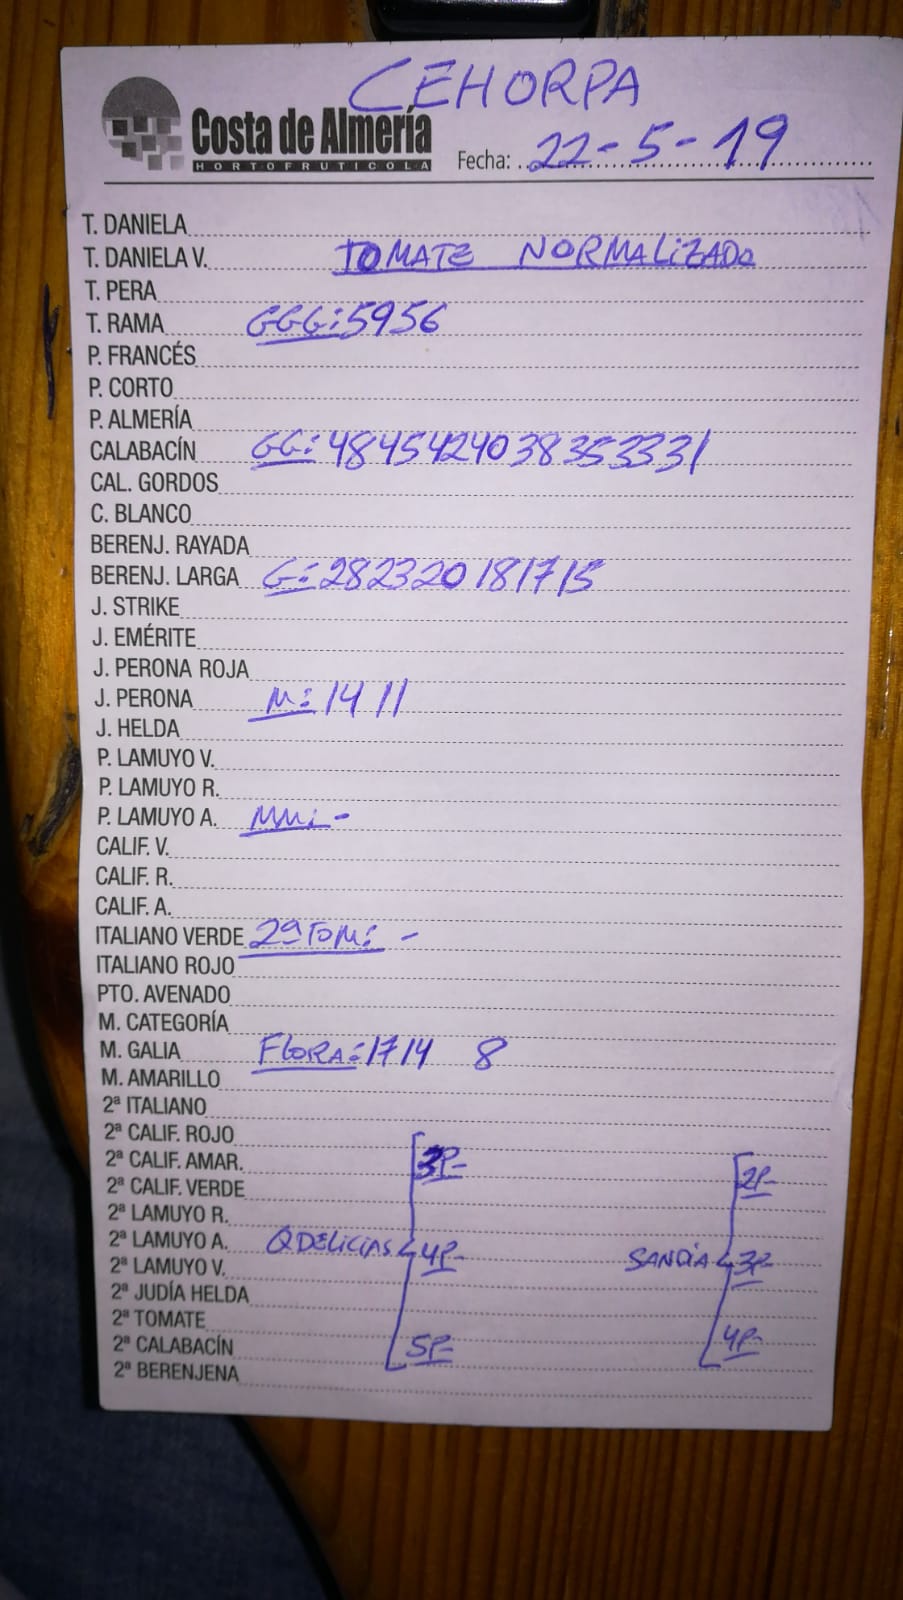 CEHORPA
Costa de Almería
HORTOFRUTICOLA
Fecha: 22-5-19
T. DANIELA
T. DANIELA V. TOMATE NORMALIZADO
T. PERA
T. RAMA GGG: 5956
P. FRANCÉS
P. CORTO
P. ALMERÍA
CALABACÍN GG: 4845424038353331
CAL. GORDOS
C. BLANCO
BERENJ. RAYADA
BERENJ. LARGA G: 282320181715
J. STRIKE
J. EMÉRITE
J. PERONA ROJA
J. PERONA M: 14 11
J. HELDA
P. LAMUYO V.
P. LAMUYO R.
P. LAMUYO A. MM: -
CALIF. V.
CALIF. R.
CALIF. A.
ITALIANO VERDE 2ª TOM: -
ITALIANO ROJO
PTO. AVENADO
M. CATEGORÍA
M. GALIA FLORA: 1714 8
M. AMARILLO
2ª ITALIANO
2ª CALIF. ROJO
2ª CALIF. AMAR. 3P- 2P-
2ª CALIF. VERDE
2ª LAMUYO R.
2ª LAMUYO A. QDELICIAS 4P- SANDÍA 3P-
2ª LAMUYO V.
2ª JUDÍA HELDA
2ª TOMATE
2ª CALABACÍN 5P- 4P-
2ª BERENJENA